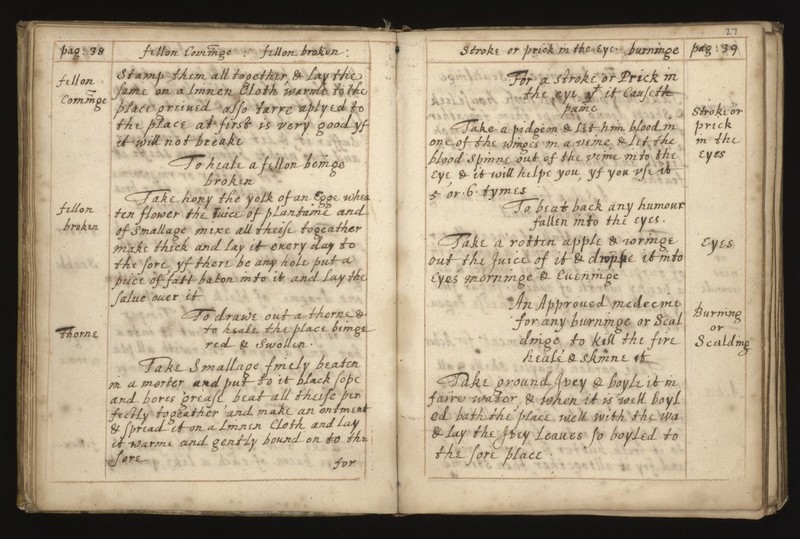 pag: 38
fellon Com̄inge : fellon broken :
fellon
Com̄inge
Stamp them all together & Lay the
same on a linnen Cloth warme to the
place greived also tarre aplyed to
the place at first is very good yf
it will not breake
To heale a fellon beinge
broken
fellon
broken
Take hony the yolk of an Egge whea
ten flower the Juice of plantaine and
of Smallage mixe all theise togeather
make thick and lay it every day to
the sore, yf there be any hole put a
peice of fatt bakon into it and Lay the
salue ouer it
To drawe out a thorne &
to heale the place beinge
red & Swollen.
Thorne
Take Smallage finely beaten
in a morter and put to it black sope
and bores grease beat all theise per
fectly togeather and make an ointment
& spread it on a Linnen Cloth and Lay
it warme and gently bound on to the
sore
for
27
Stroke or prick in the Eye: burninge
pag: 39
For a stroke or Prick in
the eye yt it Causeth
paine
Stroke or
prick
in the
eyes
Take a pidgeon & Let him blood in
one of the winges in a veine, & Let the
blood Spinne out of the veine into the
Eye & it will helpe you, yf you vse it
5 or. 6. tymes
To beat back any humour
fallen into the eyes.
Eyes
Take a rotten apple & wringe
out the Juice of it & droppe it into
Eyes morninge & Eueninge
An Approued medecine
for any burninge or Scal
dinge to kill the fire
heale & skinne it
Burning
or
Scalding
Take ground Jvey & boyle it in
faire water, & when it is well boyl
ed bath the place well with the wa
& lay the Jvey Leaues so boyled to
the sore place.